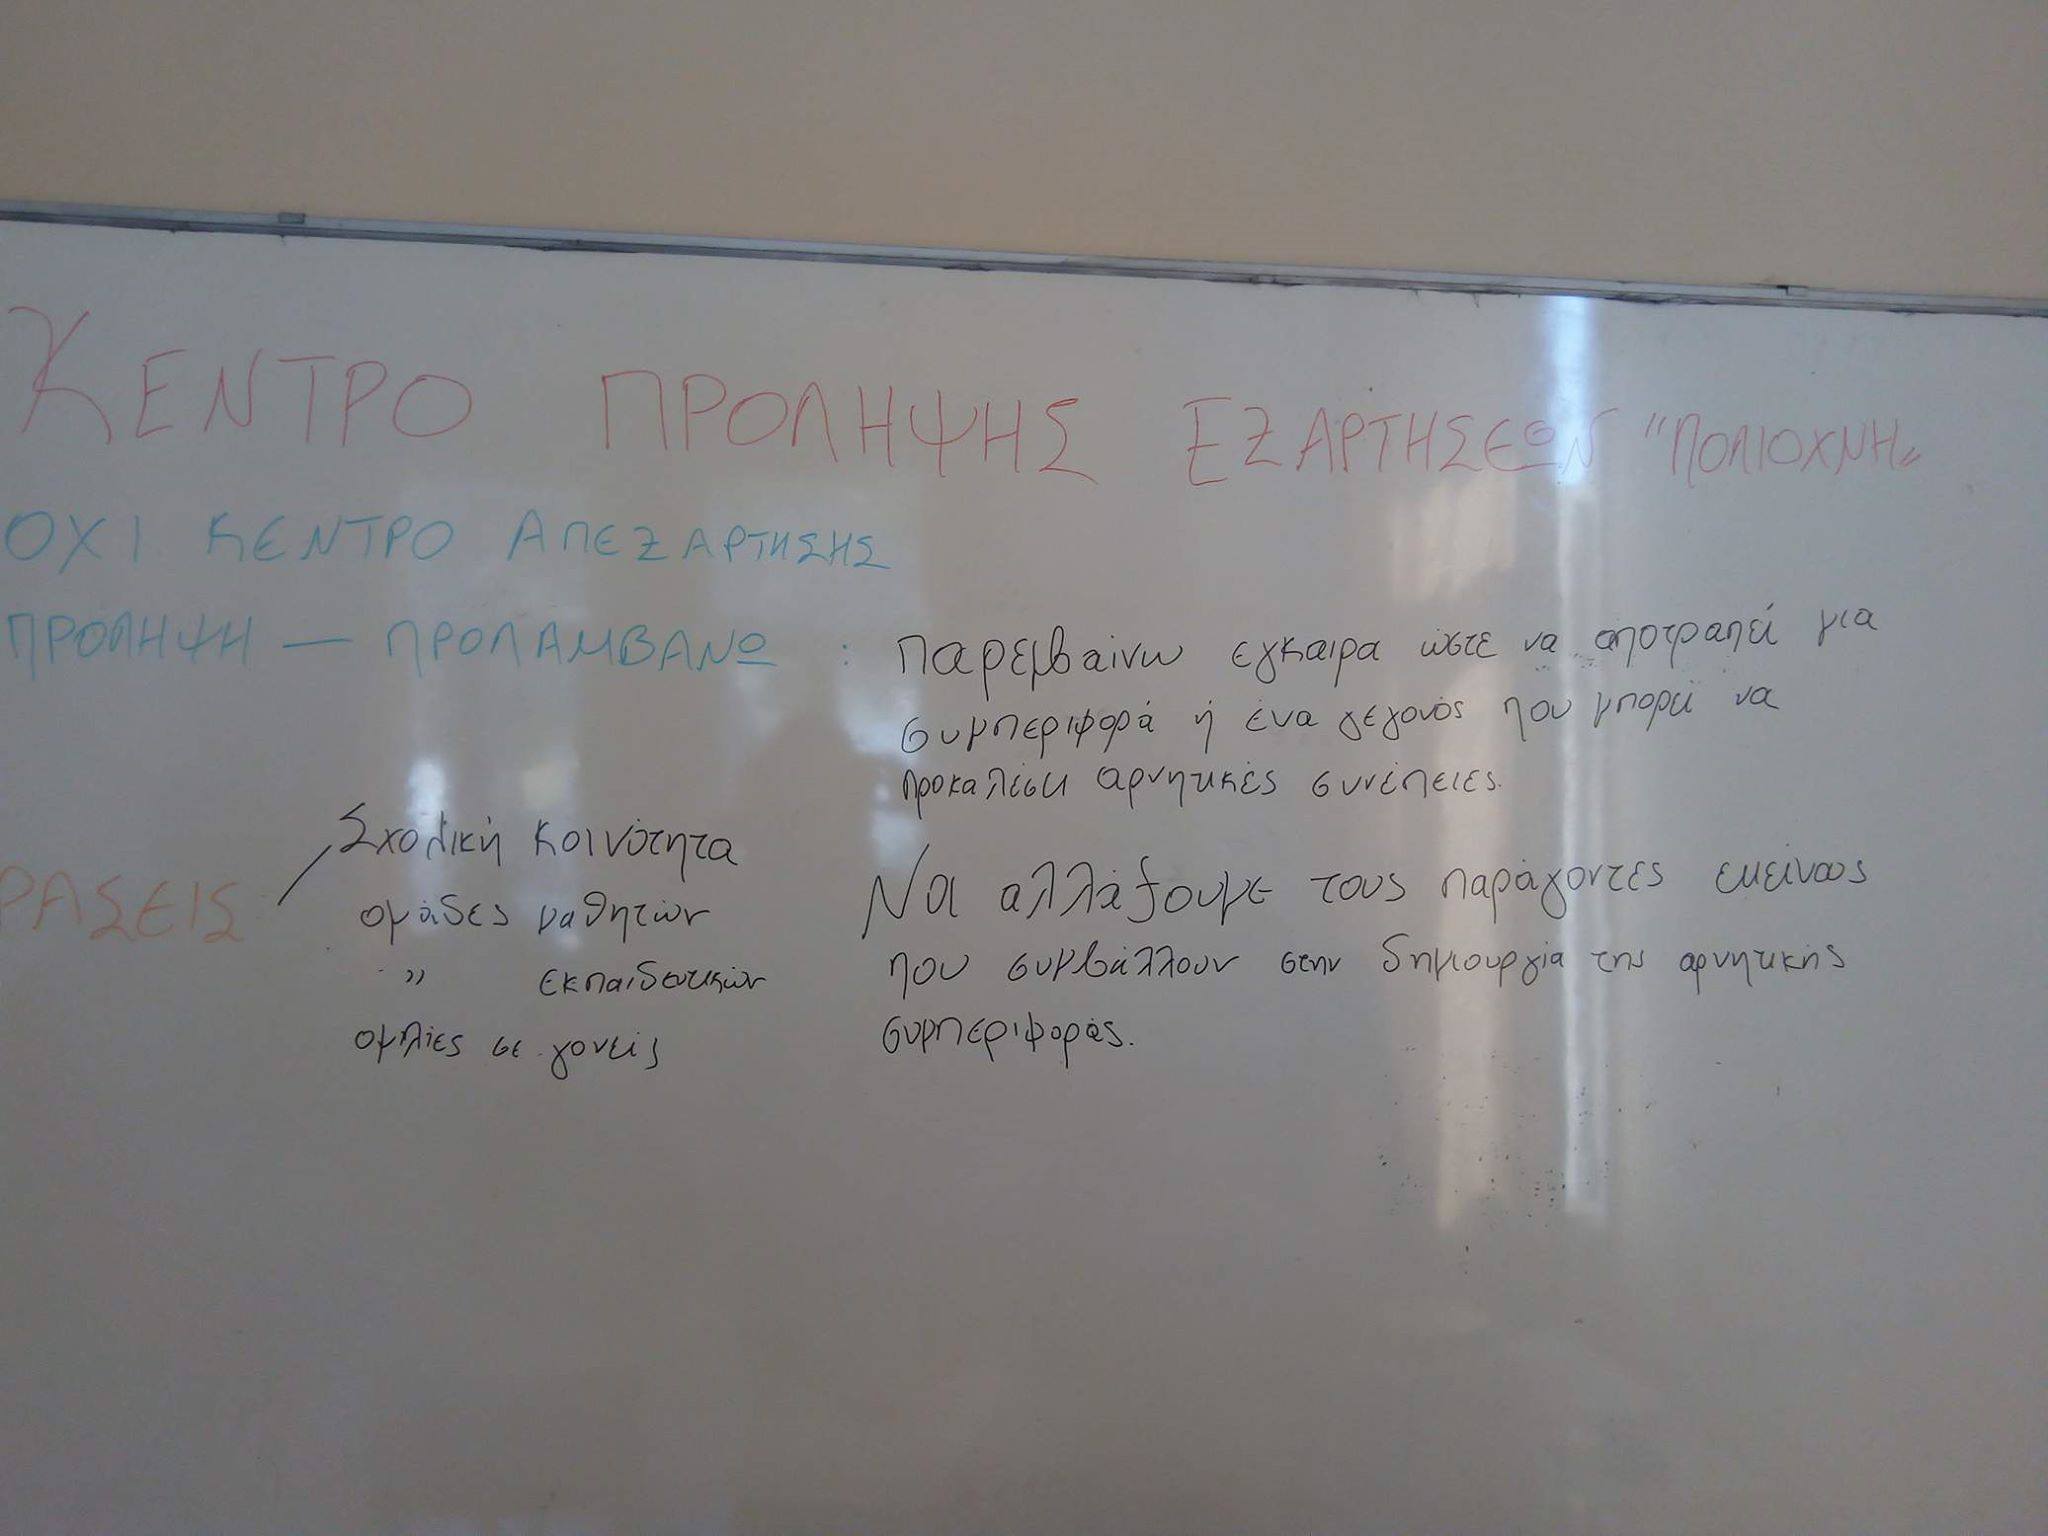 ΚΕΝΤΡΟ ΠΡΟΛΗΨΗΣ ΕΞΑΡΤΗΣΕΩΝ "ΠΟΛΙΟΧΝΗ"
ΟΧΙ ΚΕΝΤΡΟ ΑΠΕΞΑΡΤΗΣΗΣ
ΠΡΟΛΗΨΗ — ΠΡΟΛΑΜΒΑΝΩ : Παρεμβαίνω έγκαιρα ώστε να αποτραπεί μια
συμπεριφορά ή ένα γεγονός που μπορεί να
προκαλέσει αρνητικές συνέπειες.
Σχολική κοινότητα
ΡΑΣΕΙΣ
ομάδες μαθητών
" εκπαιδευτικών
ομιλίες σε γονείς
Να αλλάξουμε τους παράγοντες εκείνους
που συμβάλλουν στην δημιουργία της αρνητικής
συμπεριφοράς.